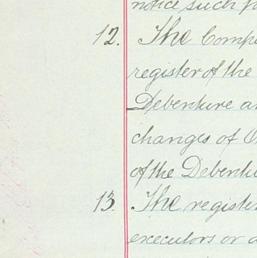 notice such
12. The Comp
register of the
Debenture a
changes of O
of the Debentu
13. The registe
executors or a